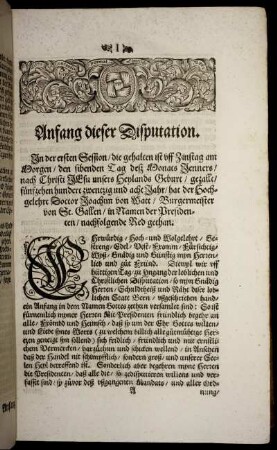 1
Anfang dieser Disputation.
In der ersten Session / die gehalten ist vff Zinstag am
Morgen / den sibenden Tag deß Monats Jenners /
nach Christi JEsu unsers Heylands Geburt / gezalte /
fünfzehen hundert zwentzig und acht Jahr / hat der Hoch-
gelehrt Doctor Joachim von Watt / Burgermeister
von St. Gallen / in Namen der Presiden-
ten / nachfolgende Red gethan.
Ehrwürdig / Hoch- und Wolgelehrt / Ge-
strenge / Edel / Vest / Fromm / Fürsichtig /
Weyß / Gnädig und Günstig myn Herren /
lieb und gut Fründ. Diewyl wir vff
hüttigen Tag / zu Jngang der loblichen und
Christlichen Disputation / so myn Gnädig
Herren / Schuldtheiß und Räht diser lob-
lichen Statt Bern / vßgeschriben hand /
ein Anfang in dem Namen Gottes zethun versamlet sind: So ist
fürnemlich myner Herren Mit-Presidenten früntlich begehr an
alle / Frömbd und Heimsch / daß sy umb der Ehr Gottes willen /
und Liebe syns Worts / (zu welchem billich alle gutmütige Her-
tzen geneigt syn söllend) sich fridlich / früntlich und mit ernstli-
chem Vermercken / darzulassen und schicken wöllend / in Ansehen
daß der Handel nit schimpfflich / sondern groß / und unserer See-
len Heyl betreffend ist. Sonderlich aber begehren myne Herren
die Presidenten / daß alle die / so zedisputieren willens und ver-
fasset sind / sy zuvor deß vßgangenen Mandats / und aller Ord-
A
nung /